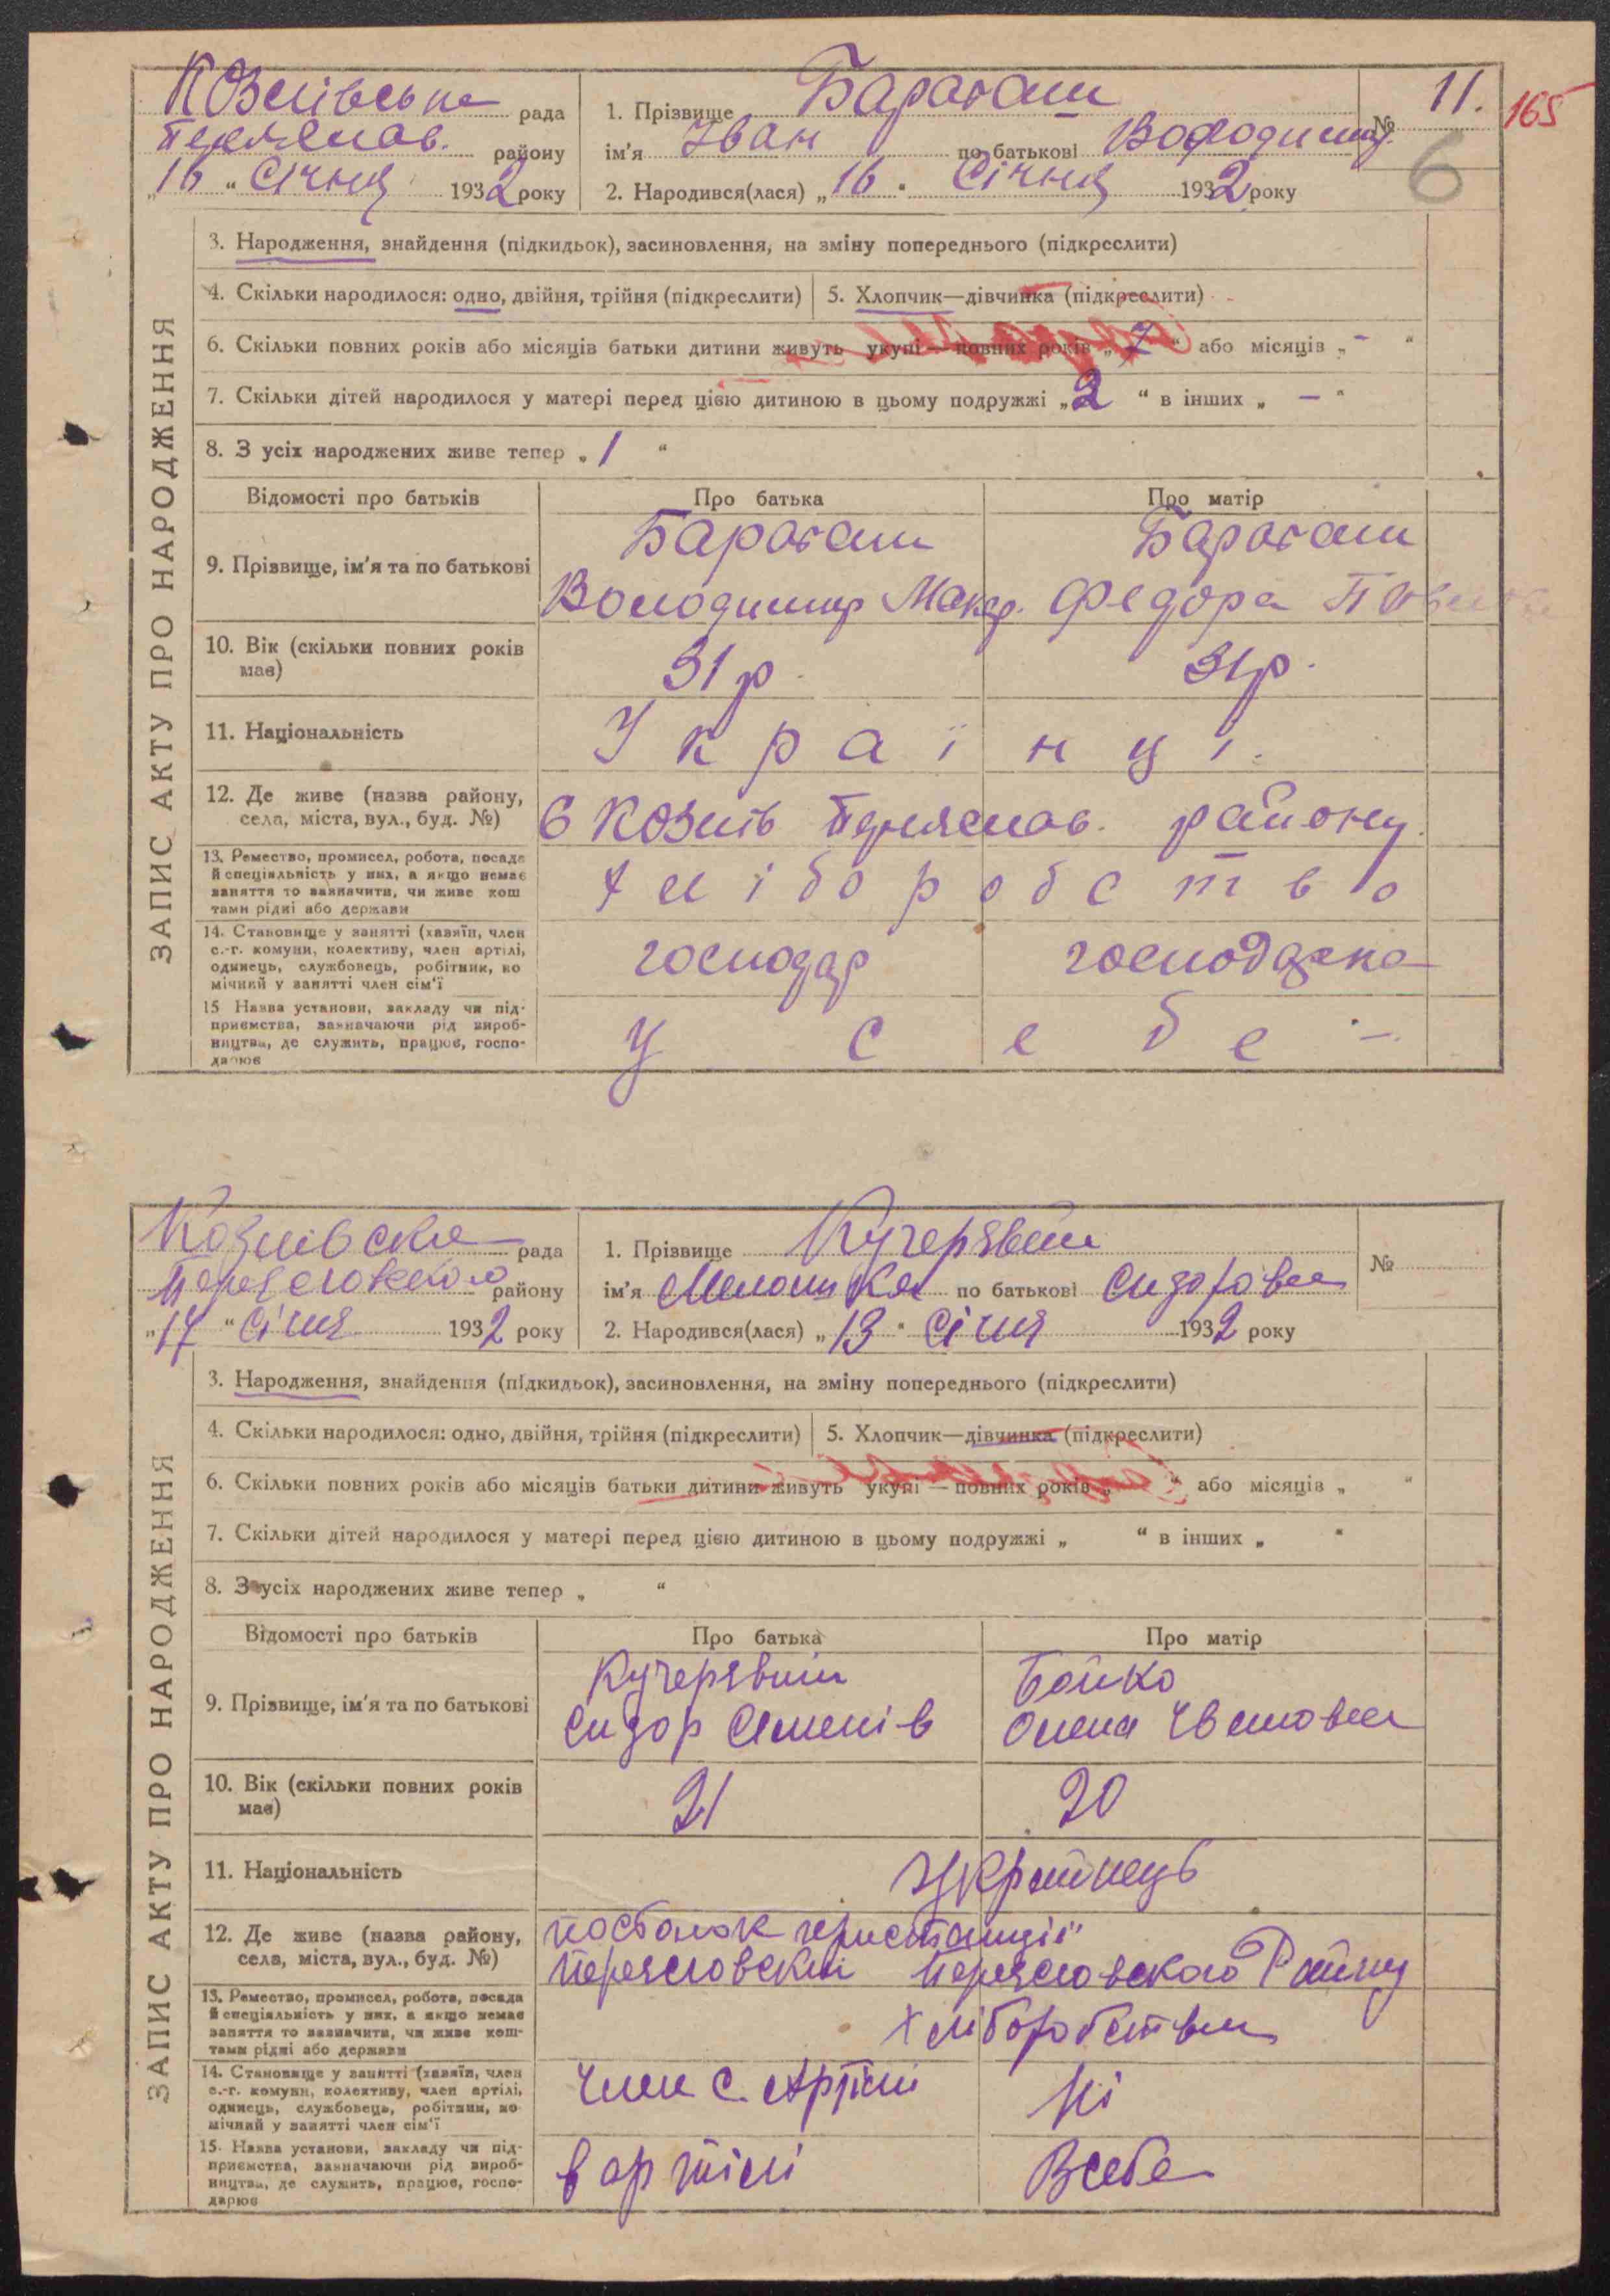 Козлівська рада
Переяслав. району
„16“ Січня 1932 року
1. Прізвище Бараташ
ім'я Іван по батькові Володимир.
2. Народився(лася) „16“ Січня 1932 року
№ 11.
165
6
ЗАПИС АКТУ ПРО НАРОДЖЕННЯ
3. Народження, знайдення (підкидьок), засиновлення, на зміну попереднього (підкреслити)
4. Скільки народилося: одно, двійня, трійня (підкреслити) 5. Хлопчик—дівчинка (підкреслити)
6. Скільки повних років або місяців батьки дитини живуть укупі — повних років „7“ або місяців „-“
7. Скільки дітей народилося у матері перед цією дитиною в цьому подружжі „2“ в інших „—“
8. З усіх народжених живе тепер „1“
Відомості про батьків Про батька Про матір
9. Прізвище, ім'я та по батькові
Бараташ Бараташ
Володимир Макар. Федора
10. Вік (скільки повних років має) 31 р. 31 р.
11. Національність Українці.
12. Де живе (назва району,
села, міста, вул., буд. №)
с Козлів Переяслав. району.
13. Ремество, промисел, робота, посада
й спеціяльність у них, а якщо немає
заняття то зазначити, чи живе кош
тами рідні або держави
Хліборобство
14. Становище у занятті (хазяїн, член
с.-г. комуни, колективу, член артілі,
одинець, службовець, робітник, по
мічний у занятті член сім'ї
господар господарка
15 Назва установи, закладу чи під-
приємства, зазначаючи рід вироб-
ництва, де служить, працює, госпо-
дарює
у себе -
Козлівска рада
Переяславского району
„17“ Січня 1932 року
1. Прізвище Кучерявий
ім'я Мелашка по батькові Сидоровна
2. Народився(лася) „13“ Січня 1932 року
№
ЗАПИС АКТУ ПРО НАРОДЖЕННЯ
3. Народження, знайдення (підкидьок), засиновлення, на зміну попереднього (підкреслити)
4. Скільки народилося: одно, двійня, трійня (підкреслити) 5. Хлопчик—дівчинка (підкреслити)
6. Скільки повних років або місяців батьки дитини живуть укупі — повних років „ “ або місяців „ “
7. Скільки дітей народилося у матері перед цією дитиною в цьому подружжі „ “ в інших „ “
8. З усіх народжених живе тепер „ “
Відомості про батьків Про батька Про матір
9. Прізвище, ім'я та по батькові
Кучерявий Бойко
Сидор Семенів Олена
10. Вік (скільки повних років має) 21 20
11. Національність Українець
12. Де живе (назва району,
села, міста, вул., буд. №)
Переяславский Переяславского Району
13. Ремество, промисел, робота, посада
й спеціяльність у них, а якщо немає
заняття то зазначити, чи живе кош-
тами рідні або держави
Хліборобства
14. Становище у занятті (хазяїн, член
с.-г. комуни, колективу, член артілі,
одинець, службовець, робітник, по
мічний у занятті член сім'ї
член с. Артілі Ні
15. Назва установи, закладу чи під-
приємства, зазначаючи рід вироб-
ництва, де служить, працює, госпо-
дарює
в артілі Всебе